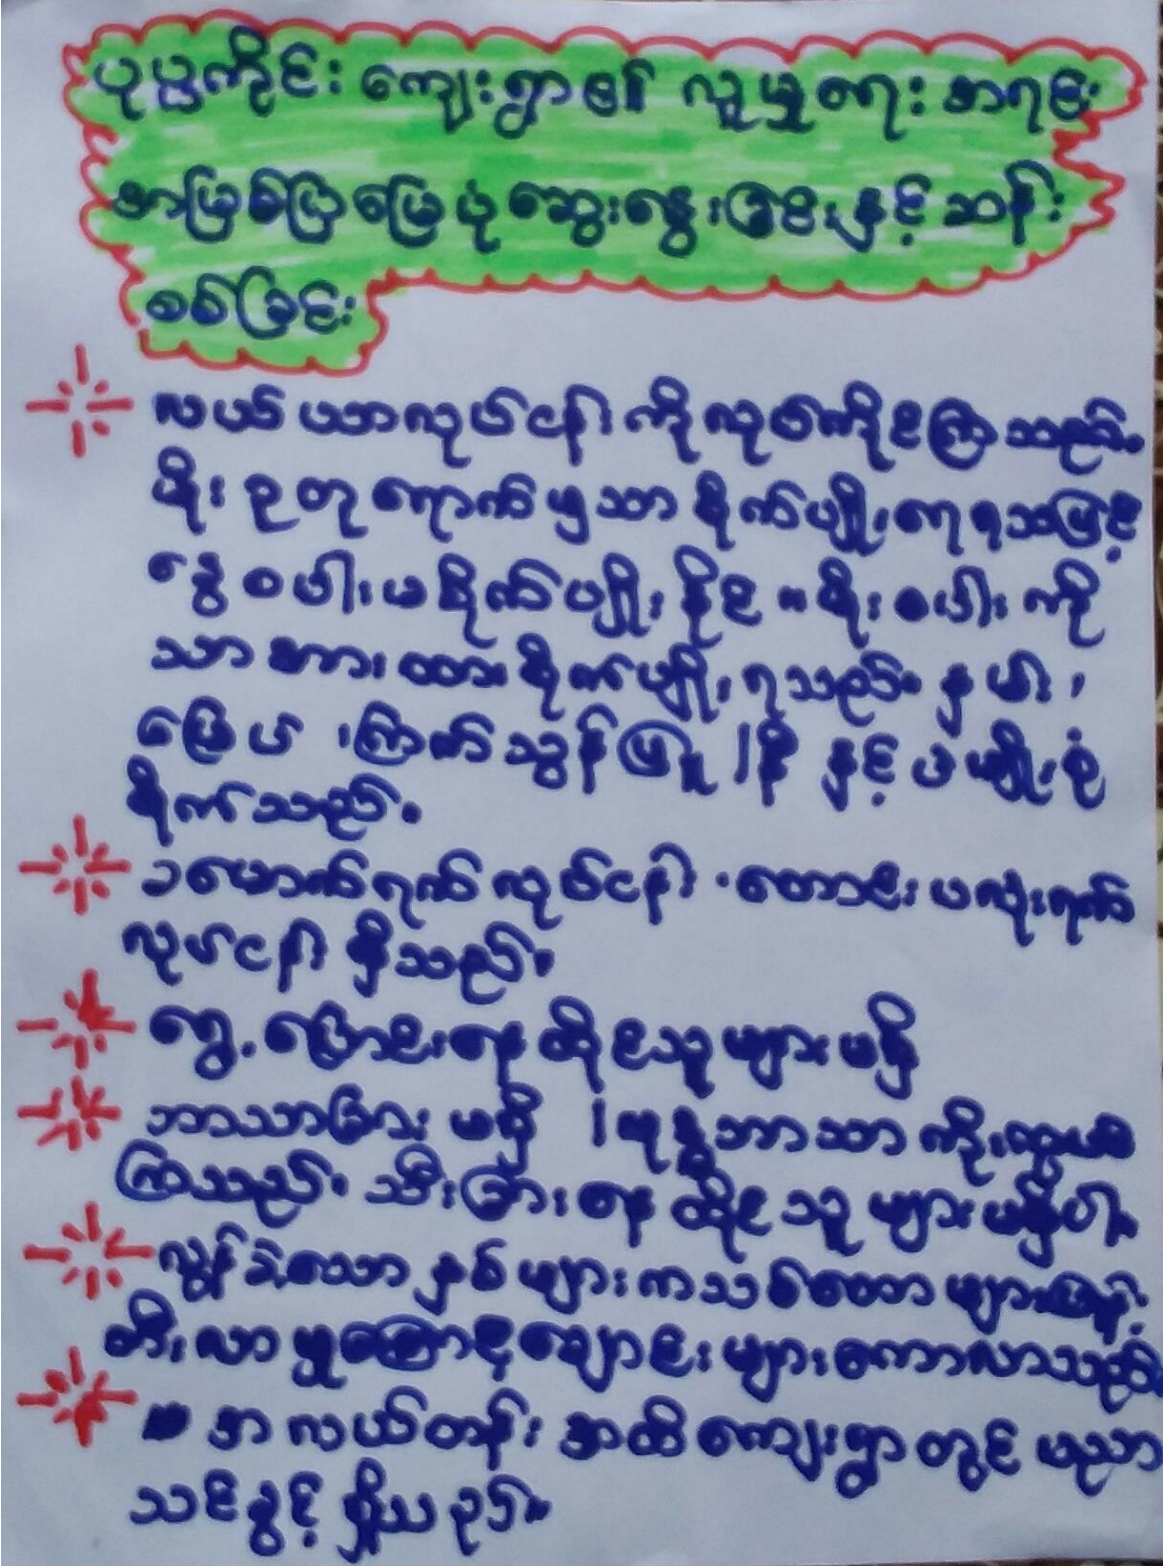 ပုပ္ပကိုင်း ကျေးရွာ၏ လူမှုရေး အရင်း
အမြစ်ပြမြေပုံဆွေးနွေးခြင်းနှင့် ဆန်း
စစ်ခြင်း
လယ်ယာလုပ်ငန်း ကိုလုပ်ကိုင်ကြသည်။
မိုးဥတုရောက်မှသာ စိုက်ပျိုးရေရသဖြင့်
နွေစပါးမစိုက်ပျိုးနိုင်။ မိုးစပါးကို
သာအားထားစိုက်ပျိုးရသည်။ နှမ်း၊
မြေပဲ၊ ကြက်သွန်ဖြူ/နီ နှင့် ပဲမျိုးစုံ
စိုက်သည်။
ခမောက်ရက်လုပ်ငန်း၊ တောင်းပလုံးရက်
လုပ်ငန်း ရှိသည်။
ရွှေ့ပြောင်းနေထိုင်သူများမရှိ
ဘာသာခြားမရှိ / ဗုဒ္ဓဘာသာကိုးကွယ်
ကြသည်။ သီးခြားနေထိုင်သူများမရှိပါ။
လွန်ခဲ့သောနှစ်များကသစ်တောများဖြုန်း
တီးလာမှုကြောင့်ချောင်းများကောလာသည်။
အလယ်တန်းအထိ ကျေးရွာတွင် ပညာ
သင်ခွင့် ရှိသည်။